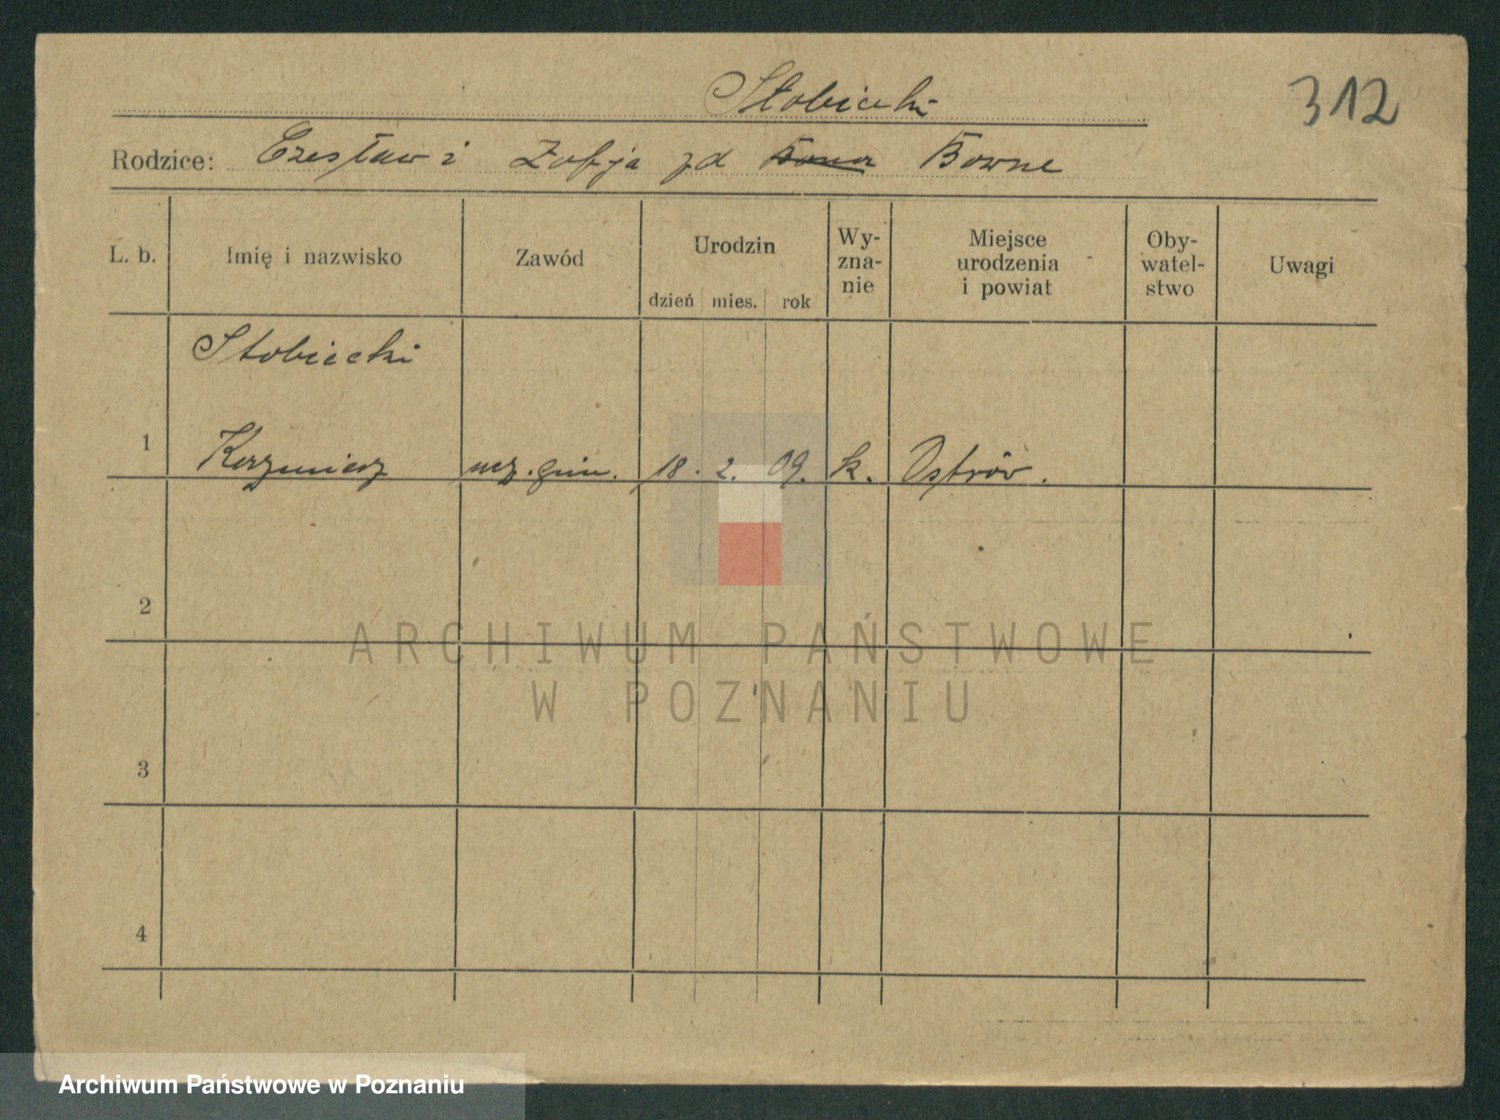 Stobiecki
312
Rodzice: Czesław i Zofja zd Bowne
L. b.
Imię i nazwisko
Zawód
Urodzin
dzień mies. rok
Wy-
zna-
nie
Miejsce
urodzenia
i powiat
Oby-
watel-
stwo
Uwagi
Stobiecki
1 Kazimierz ucz. gim. 18. 2. 09. k. Ostrów.
2
ARCHIWUM PAŃSTWOWE
W POZNANIU
3
4
Archiwum Państwowe w Poznaniu